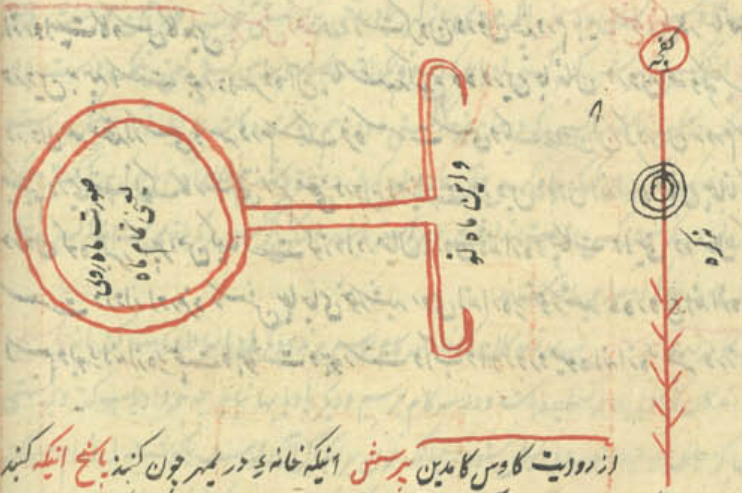 کفچه
۸
ذکره
واین ماه نو
صورت ماه روی
یعنی تمام ماه
از روایت کاوس کامدین پرسش آنیکه خانهٔ در یمهر چون کنند پاسخ آنیکه کنند